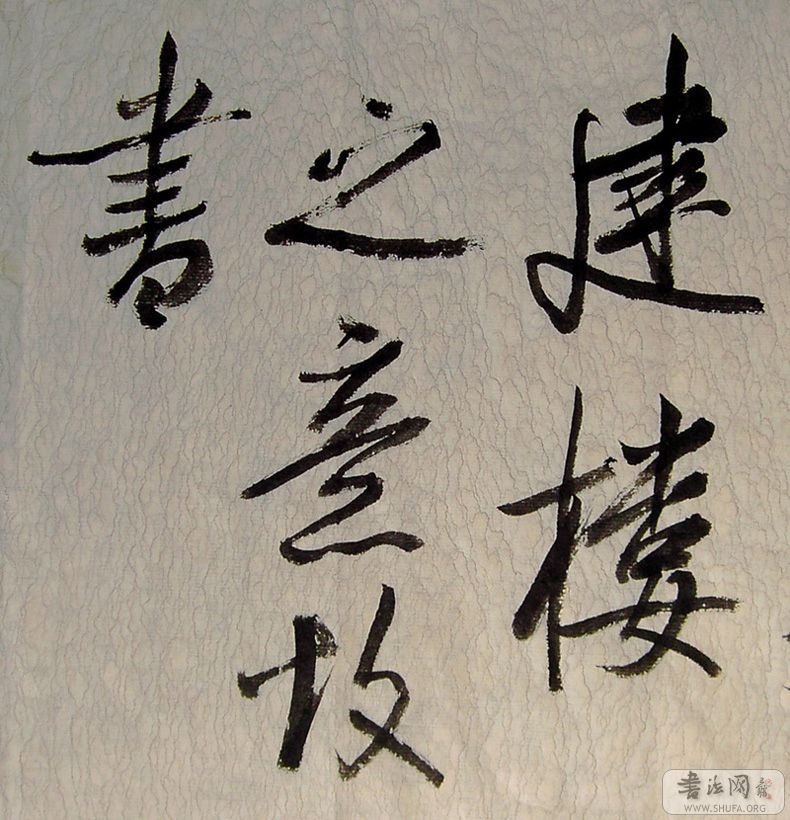 建楼
之意故
書
書法网
WWW.SHUFA.ORG